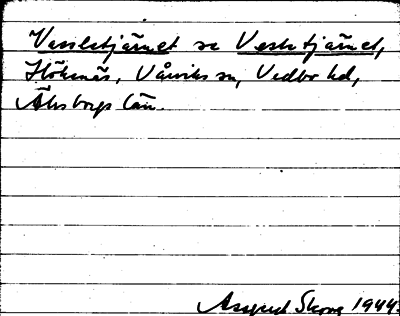 Vessletjärnet se Vesletjärnet,
Höksnäs, Vårviks sn, Vedbo hd,
Älvsborgs län.
Astrid Skoog 1944.